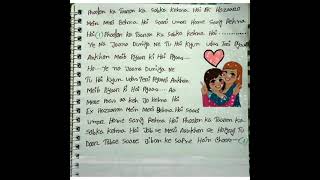 Phoolon Ka Taaron Ka Sabka Kehna Hai Ek Hazaaron
Mein Meri Behna Hai Saari Umar Hame Sang Rehna
Hai Phoolon Ka Taaron Ka Sabka Kehna Hai
Ye Na Jaana Duniya Ne Tu Hai Kyun Udas Teri Pyaasi
Aankhon Mein Pyaar Ki Hai Pyaas
Ho Ye Na Jaana Duniya Ne
Tu Hai Kyun Udas Teri Pyaasi Aankhon
Mein Pyaar Ki Hai Pyaas Aa
Mere Paas Aa Keh Jo Kehna Hai
Ek Hazaaron Mein Meri Behna Hai Saari
Umar Hame Sang Rehna Hai Phoolon Ka Taaron Ka
Sabka Kehna Hai Jab se Meri Aankhon se Hogayi Tu
Door Tabse Saare Jiban ke Sapne Hain Choor